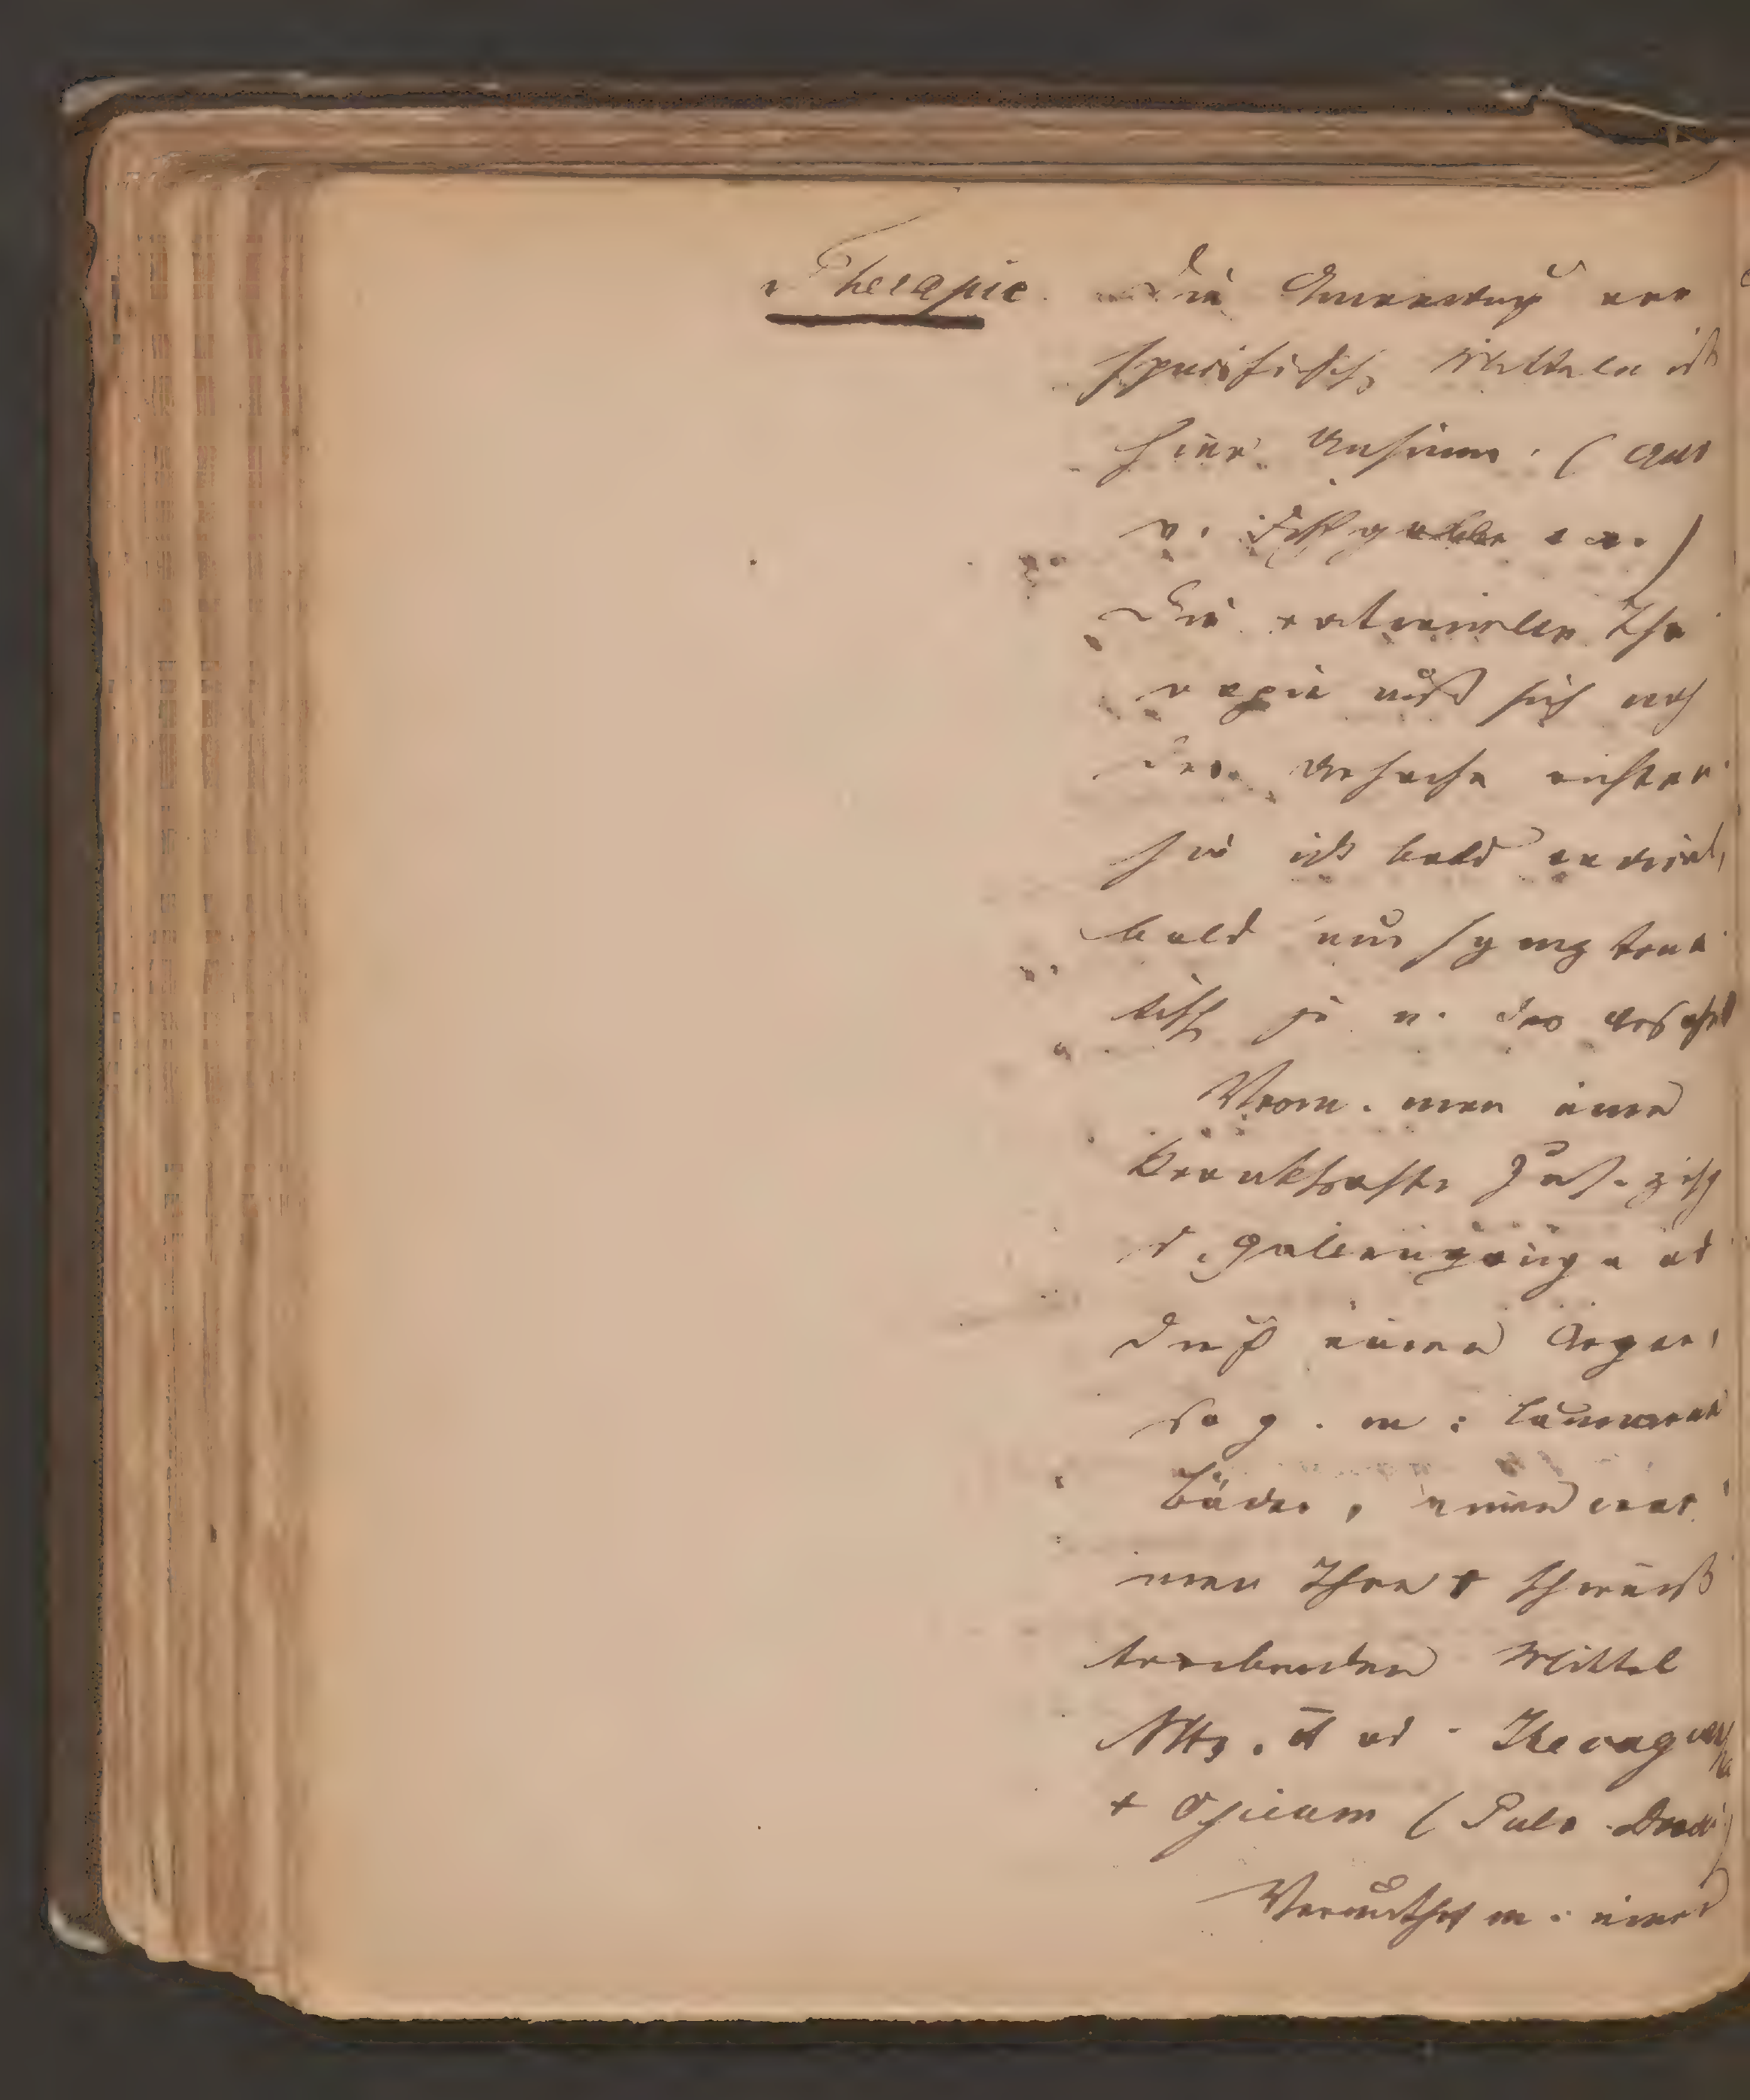 Therapie. Die Anwendung von
spezifisch Mitteln ist
hier Unsinn. (Aus
v. Ochsgalle
Die rationelle The
rapie muß sich nach
der Ursache richten
sie ist bald radical,
bald nur symptoma
tisch je n. der Ursache
Verm. man eine
krankhafte
d. Gallengänge od
einen
so g. m.: lauwarme
Bäder,
man Thee + schweiß
treibenden Mittel
od. Ipecacuanha
+ Opium (Pulv. Doveri)
Vermuthet m. einen